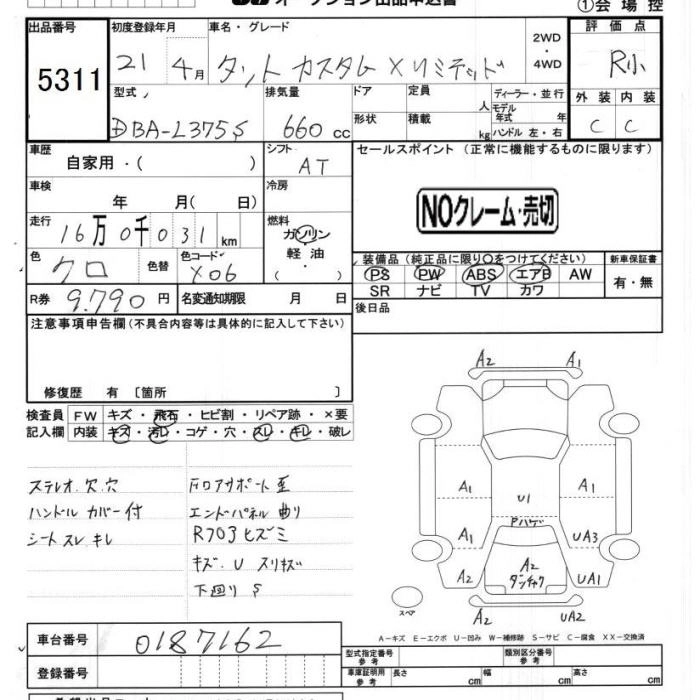 オークション出品申込書
①会場控
出品番号 初度登録年月 車名・グレード 2WD・4WD 評価点
5311 21 4月 タント カスタム Xリミテッド R小
型式 排気量 ドア 定員 人 ディーラー・並行 外装 内装
DBA-L375S 660cc 形状 積載 kg モデル年式 年 ハンドル 左・右 C C
車歴 自家用・( ) シフト AT セールスポイント(正常に機能するものに限ります)
車検 年 月( 日) 冷房
NOクレーム・売切
走行 16万0千031km 燃料 ガソリン 軽油・( )
色 クロ 色替 色コード X06
装備品(純正品に限り〇をつけてください) 新車保証書
PS PW ABS エアB AW 有・無
SR ナビ TV カワ
R券 9.790円 名変通知期限 月 日 後日品
注意事項申告欄(不具合内容等は具体的に記入して下さい)
修復歴 有 〔箇所 〕
検査員 FW キズ・飛石・ヒビ割・リペア跡・×要
記入欄 内装 キズ・汚レ・コゲ・穴・スレ・キレ・破レ
ステレオ欠.穴
ハンドルカバー付
シートスレキレ
エンドパネル曲り
キズ.U スリキズ
下回り S
A2 A1
A1 U1 A1
Pハゲ
A1 UA3
A2 A2 UA1
ダンチャク
A2 UA2
スペア
A-キズ E-エクボ U-凹み W-補修跡 S-サビ C-腐食 XX-交換済
車台番号 0187162
型式指定番号 参考 類別区分番号 参考
登録番号 車庫証明用 参考 長さ cm 幅 cm 高さ cm